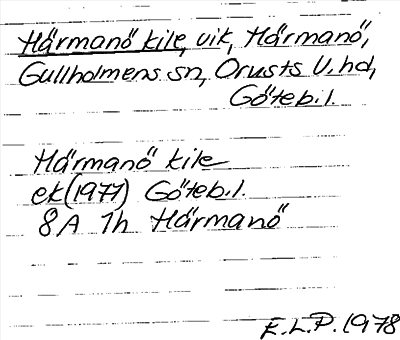 Härmanö kile, vik, Härmanö,
Gullholmens sn, Orusts V. hd,
Göteb.l.
Härmanö kile
ek (1971) Göteb.l.
8A 1h Härmanö
E.L.P. 1978